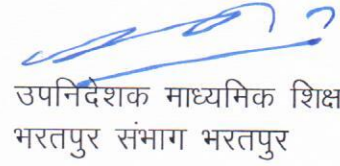 उपनिदेशक माध्यमिक शिक्ष
भरतपुर संभाग भरतपुर